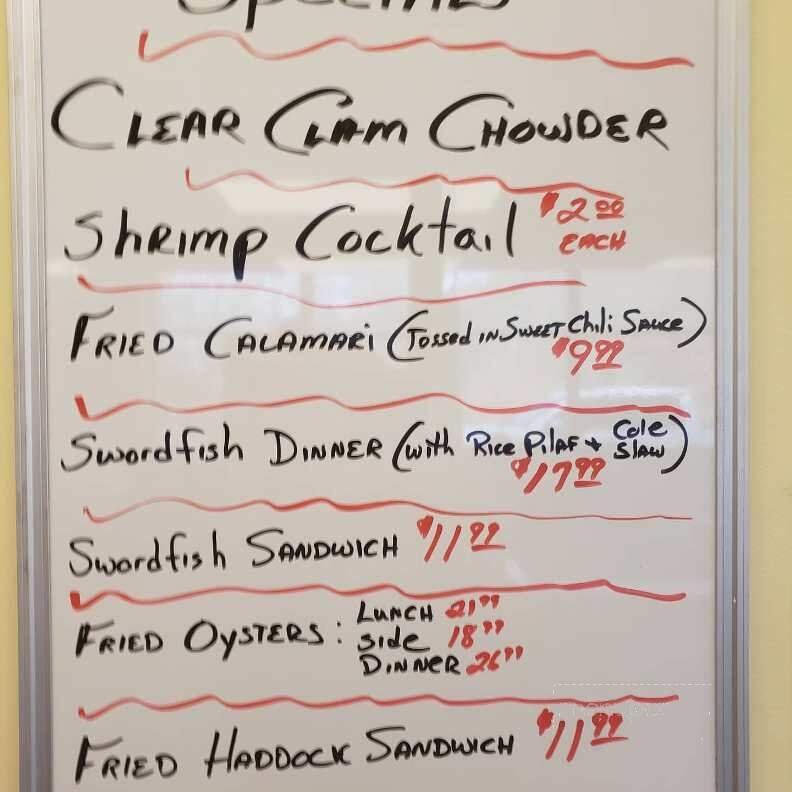 Specials
CLEAR CLAM CHOWDER
Shrimp Cocktail $2.00 EACH
FRIED CALAMARI (Tossed IN SWEET Chili SAUCE) $9.99
Swordfish DINNER (with Rice PilAF + Cole Slaw) $17.99
Swordfish SANDWICH $11.99
FRIED OYSTERS: LUNCH 21.99
side 18.99
DINNER 26.99
FRIED HADDOCK SANDWICH $11.99